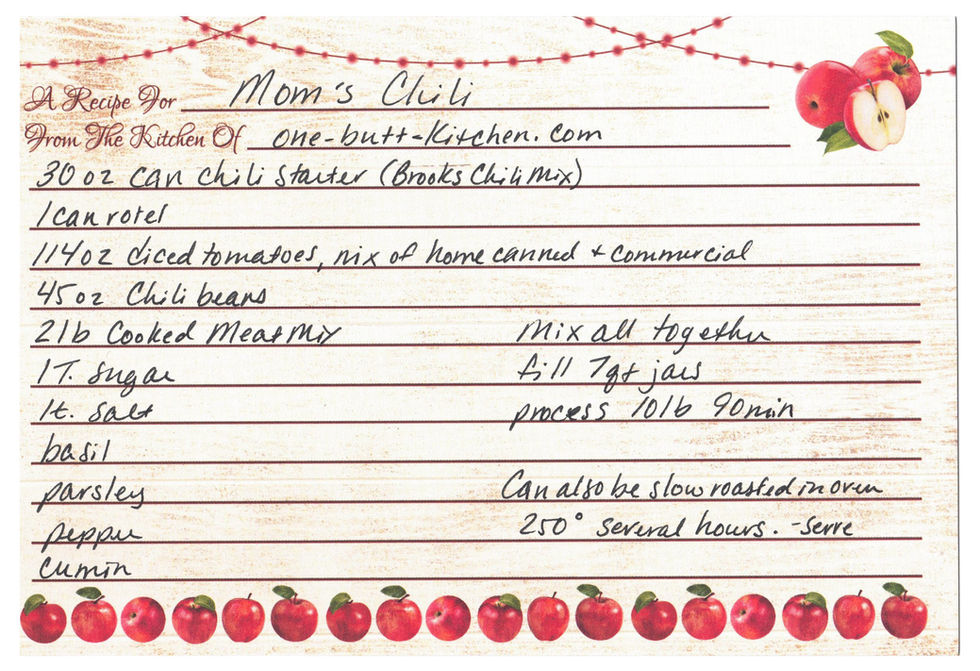 A Recipe For Mom's Chili
From The Kitchen Of one-butt-kitchen.com
30 oz can chili starter (Brooks Chili Mix)
1 can rotel
114 oz diced tomatoes, mix of home canned + commercial
45 oz Chili beans
2 lb Cooked Meat Mix
1 T. sugar
1 t. salt
basil
parsley
pepper
cumin
Mix all together
fill 7 qt jars
process 10 lb 90 min
Can also be slow roasted in oven
250° several hours. -serve